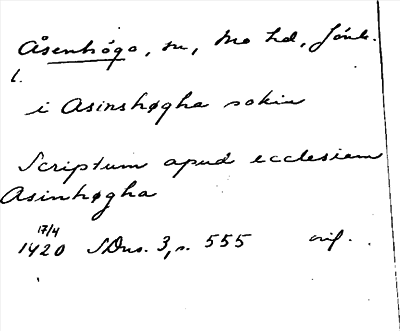 Åsenhöga, sn, Mo hd, Jönk.
l.
i Asinshøgha sokin
Scriptum apud ecclesiam
Asinhøgha
17/4
1420 SDns. 3, s. 555 orig.